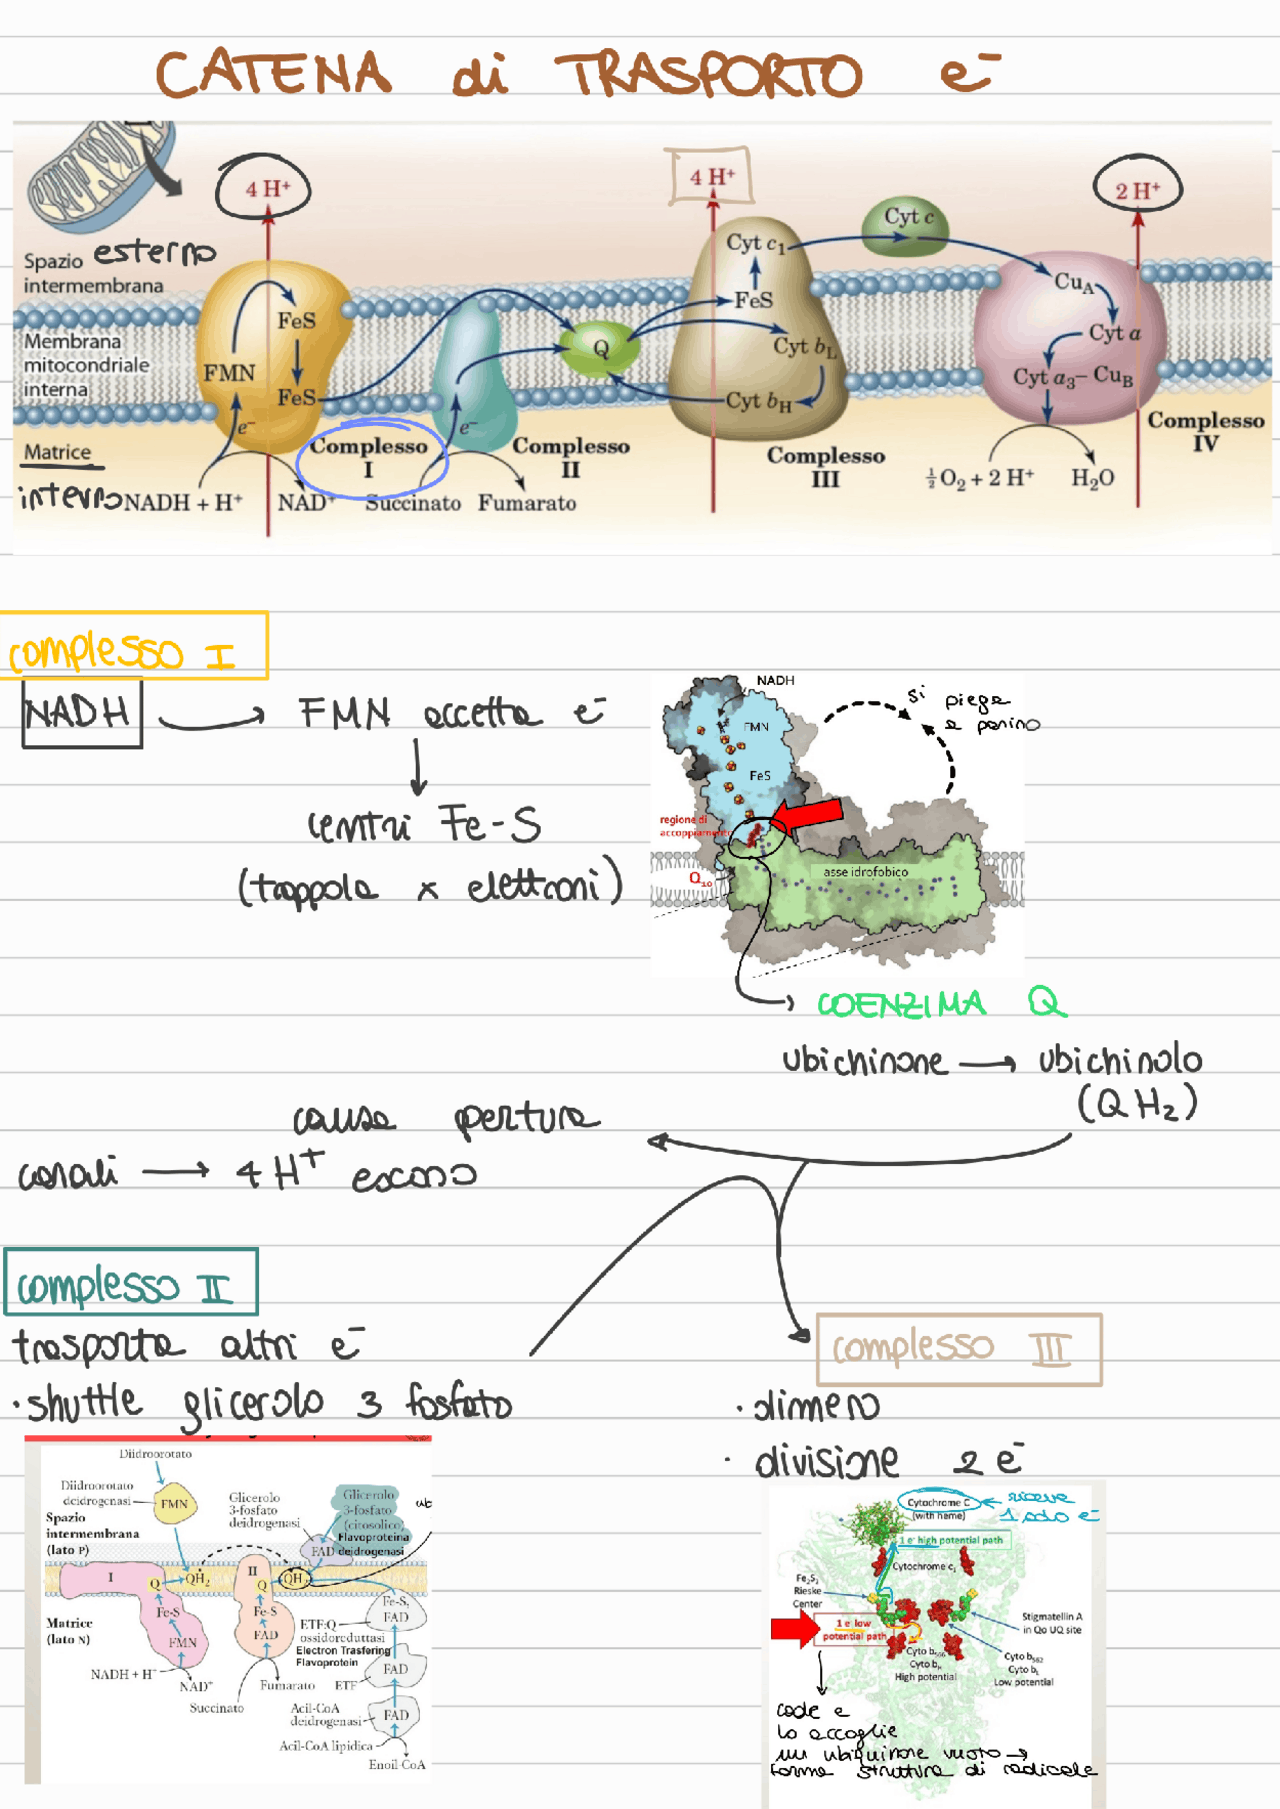 CATENA di TRASPORTO e⁻
4 H⁺
4 H⁺
2 H⁺
Spazio esterno
intermembrana
Membrana
mitocondriale
interna
Matrice
interno
FMN
FeS
FeS
e⁻
Complesso
I
NADH + H⁺
NAD⁺
e⁻
Complesso
II
Succinato
Fumarato
Q
Cyt c₁
FeS
Cyt b_L
Cyt b_H
Complesso
III
Cyt c
Cu_A
Cyt a
Cyt a₃– Cu_B
Complesso
IV
½ O₂ + 2 H⁺
H₂O
complesso I
NADH → FMN accetta e⁻
↓
centri Fe-S
(trappola x elettroni)
NADH
FMN
FeS
si piega
regione di
accoppiamento
Q₁₀
asse idrofobico
COENZIMA Q
ubichinone → ubichinolo
(QH₂)
causa pertura
canali → 4 H⁺ escono
complesso II
trasporta altri e⁻
· shuttle glicerolo 3 fosfato
Diidroorotato
Diidroorotato
deidrogenasi
FMN
Spazio
intermembrana
(lato P)
Glicerolo
3-fosfato
deidrogenasi
Glicerolo
3-fosfato
(citosolico)
Flavoproteina
deidrogenasi
FAD
I
Q
QH₂
II
Q
QH₂
Matrice
(lato N)
Fe-S
FMN
NADH + H⁺
NAD⁺
Fe-S
FAD
Succinato
Fumarato
ETF:Q
ossidoreduttasi
Electron Trasfering
Flavoprotein
Fe-S,
FAD
ETF
FAD
Acil-CoA
deidrogenasi
FAD
Acil-CoA lipidica
Enoil-CoA
complesso III
· dimero
· divisione 2 e⁻
Cytochrome C
(with heme)
← riceve
1 solo e⁻
1 e⁻ high potential path
Cytochrome c₁
Fe₂S₂
Rieske
Center
1 e⁻ low
potential path
Stigmatellin A
in Qo UQ site
Cyto b₅₆₆
Cyto b_H
High potential
Cyto b₅₆₂
Cyto b_L
Low potential
cade e
lo accoglie
un ubiquinone vuoto →
forma struttura di radicale